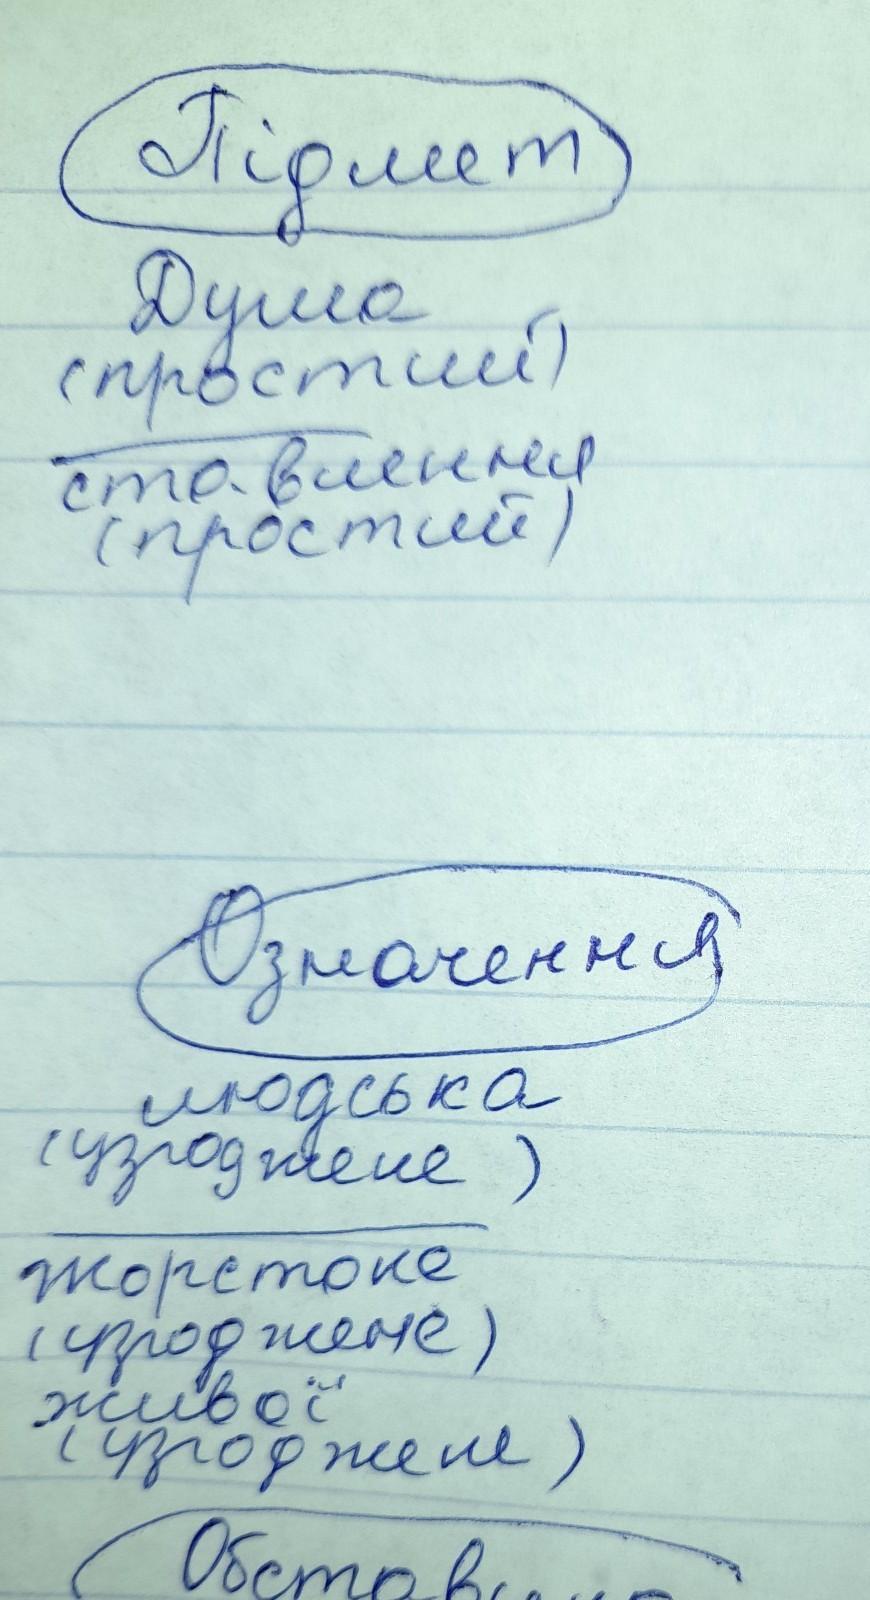 Підмет
Душа
(простий)
ставлення
(простий)
Означення
людська
(узгоджене)
жорстоке
(узгоджене)
живої
(узгоджене)
Обставина